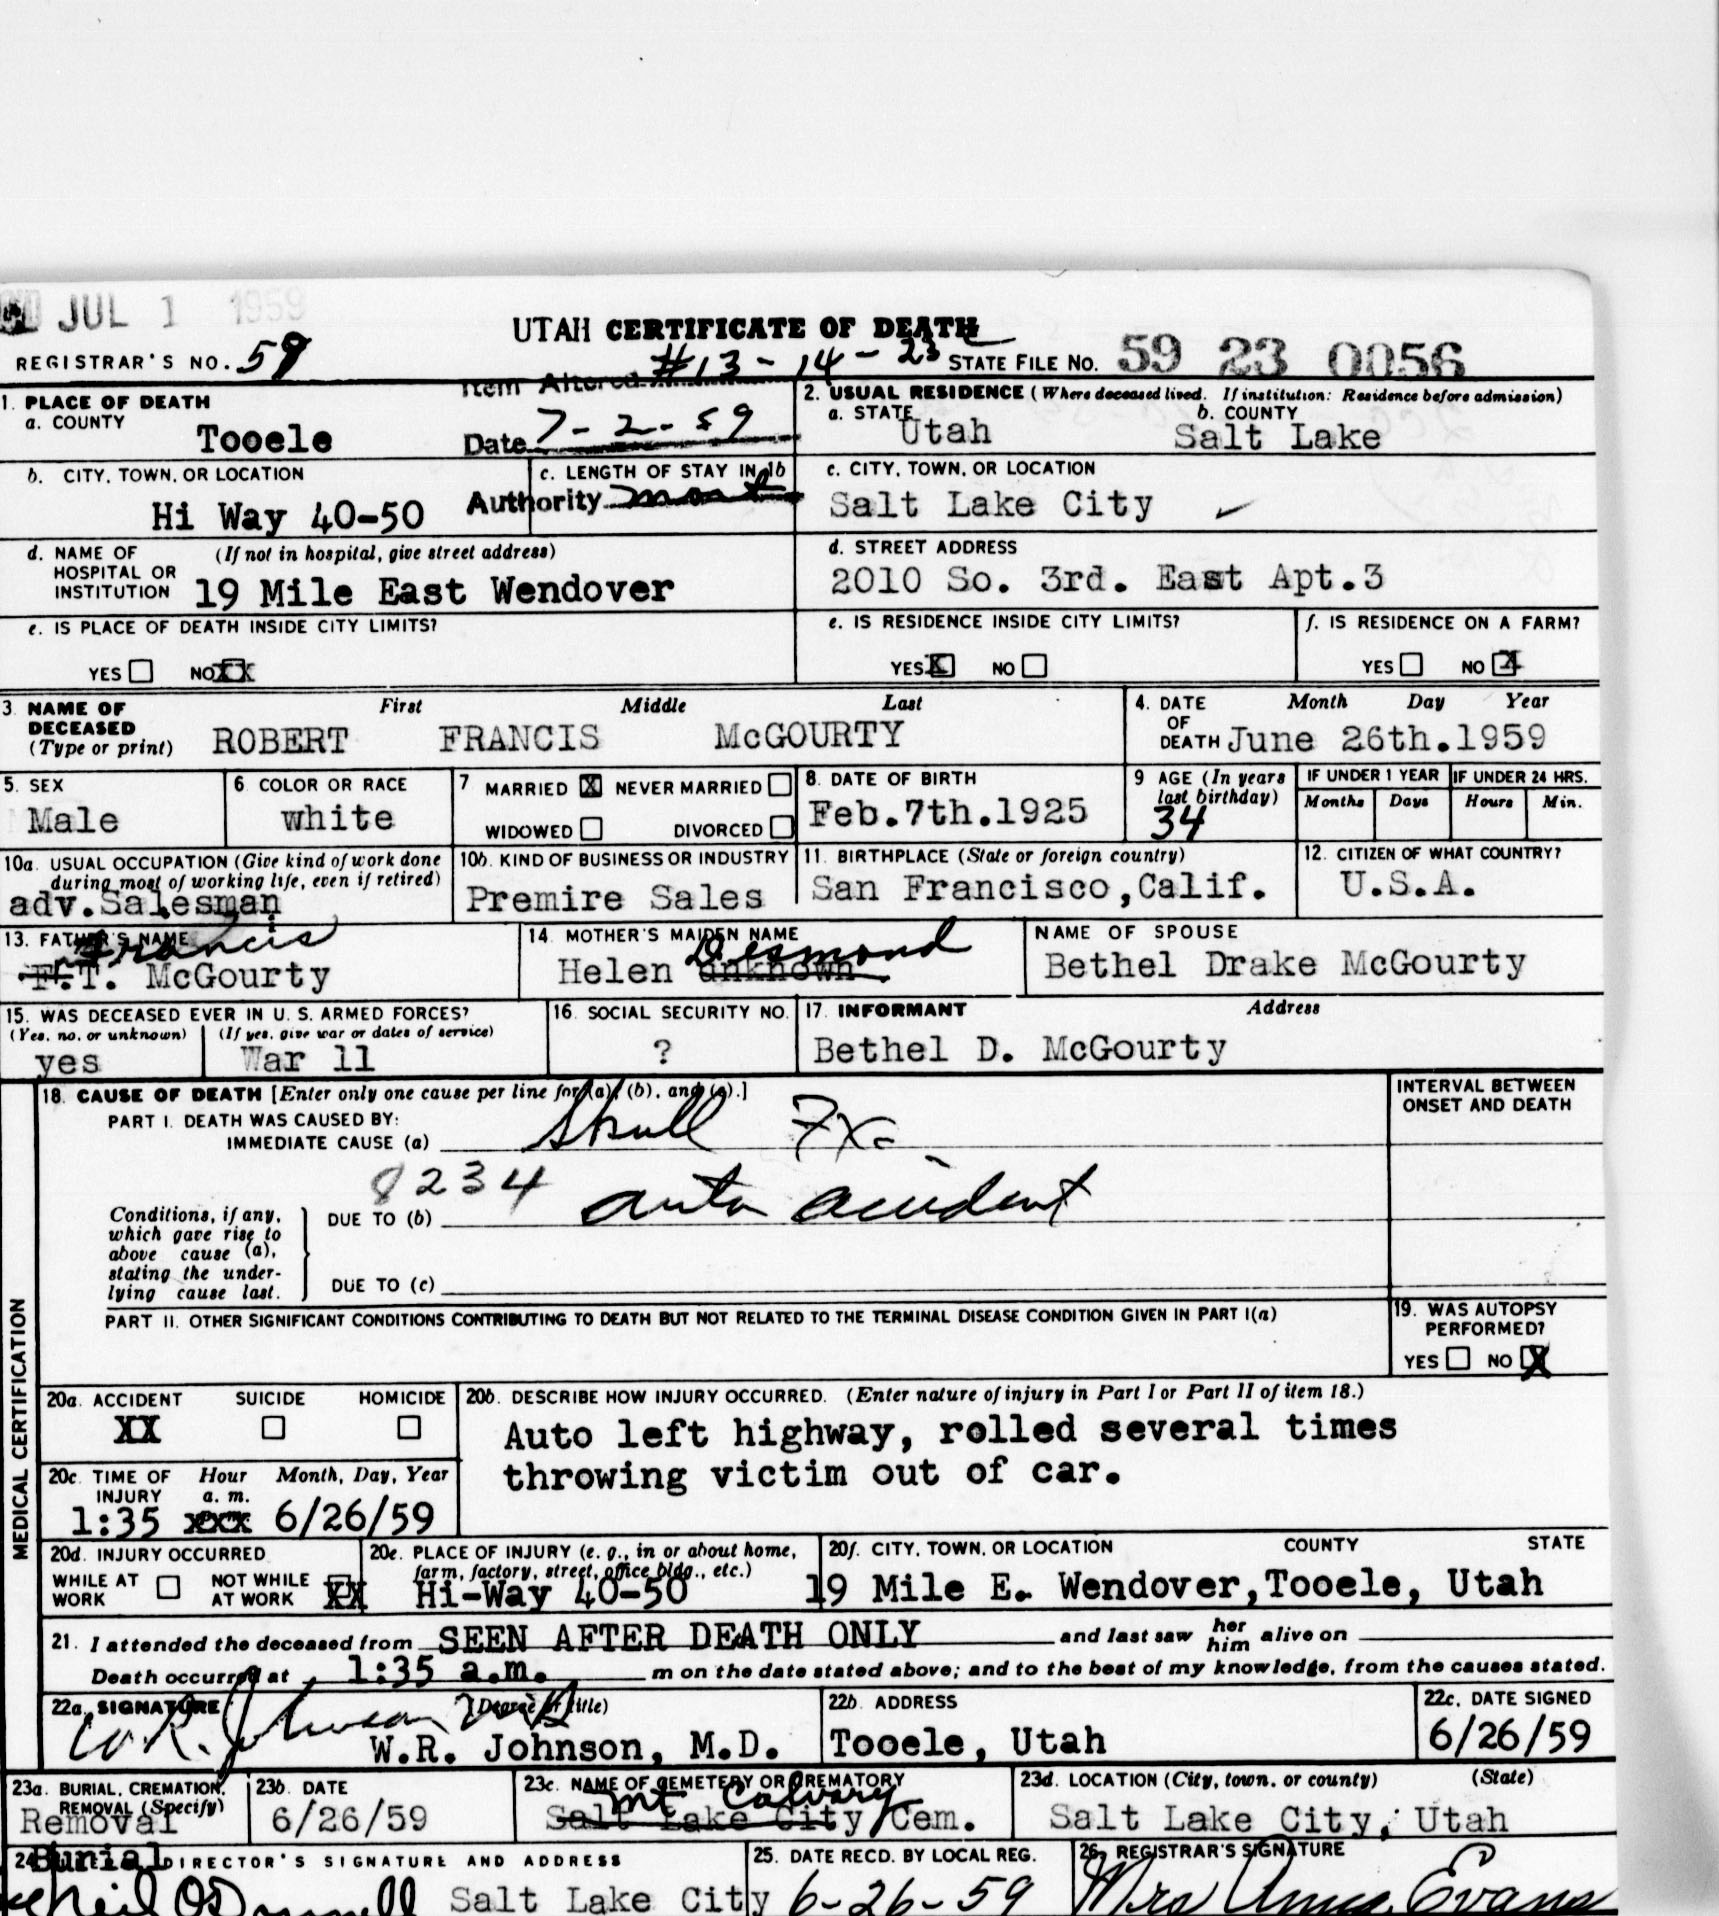 JUL 1 1959
UTAH CERTIFICATE OF DEATH
REGISTRAR'S NO. 59
Item Altered #13-14-23
STATE FILE NO. 59 23 0056
1. PLACE OF DEATH
a. COUNTY
Tooele
Date 7-2-59
2. USUAL RESIDENCE (Where deceased lived. If institution: Residence before admission)
a. STATE
Utah
b. COUNTY
Salt Lake
b. CITY, TOWN, OR LOCATION
Hi Way 40-50
c. LENGTH OF STAY IN 1b
Authority
c. CITY, TOWN, OR LOCATION
Salt Lake City
d. NAME OF HOSPITAL OR INSTITUTION (If not in hospital, give street address)
19 Mile East Wendover
d. STREET ADDRESS
2010 So. 3rd. East Apt.3
e. IS PLACE OF DEATH INSIDE CITY LIMITS?
YES NO XX
e. IS RESIDENCE INSIDE CITY LIMITS?
YES X NO
f. IS RESIDENCE ON A FARM?
YES NO X
3. NAME OF DECEASED (Type or print)
First Middle Last
ROBERT FRANCIS McGOURTY
4. DATE OF DEATH
Month Day Year
June 26th.1959
5. SEX
Male
6. COLOR OR RACE
white
7 MARRIED X NEVER MARRIED
WIDOWED DIVORCED
8. DATE OF BIRTH
Feb.7th.1925
9 AGE (In years last birthday)
34
IF UNDER 1 YEAR
Months Days
IF UNDER 24 HRS.
Hours Min.
10a. USUAL OCCUPATION (Give kind of work done during most of working life, even if retired)
adv.Salesman
10b. KIND OF BUSINESS OR INDUSTRY
Premire Sales
11. BIRTHPLACE (State or foreign country)
San Francisco,Calif.
12. CITIZEN OF WHAT COUNTRY?
U.S.A.
13. FATHER'S NAME
Francis
F.T. McGourty
14. MOTHER'S MAIDEN NAME
Desmond
Helen unknown
NAME OF SPOUSE
Bethel Drake McGourty
15. WAS DECEASED EVER IN U. S. ARMED FORCES?
(Yes, no, or unknown) (If yes, give war or dates of service)
yes War 11
16. SOCIAL SECURITY NO.
?
17. INFORMANT Address
Bethel D. McGourty
MEDICAL CERTIFICATION
18. CAUSE OF DEATH [Enter only one cause per line for (a), (b), and (c).]
PART I. DEATH WAS CAUSED BY:
IMMEDIATE CAUSE (a) Skull Fx.
8234
Conditions, if any, which gave rise to above cause (a), stating the underlying cause last.
DUE TO (b) auto accident
DUE TO (c)
INTERVAL BETWEEN ONSET AND DEATH
PART II. OTHER SIGNIFICANT CONDITIONS CONTRIBUTING TO DEATH BUT NOT RELATED TO THE TERMINAL DISEASE CONDITION GIVEN IN PART I(a)
19. WAS AUTOPSY PERFORMED?
YES NO X
20a. ACCIDENT SUICIDE HOMICIDE
XX
20b. DESCRIBE HOW INJURY OCCURRED. (Enter nature of injury in Part I or Part II of item 18.)
Auto left highway, rolled several times
throwing victim out of car.
20c. TIME OF INJURY Hour Month, Day, Year
a. m.
1:35 xxx 6/26/59
20d. INJURY OCCURRED
WHILE AT WORK NOT WHILE AT WORK XX
20e. PLACE OF INJURY (e. g., in or about home, farm, factory, street, office bldg., etc.)
Hi-Way 40-50
20f. CITY, TOWN, OR LOCATION COUNTY STATE
19 Mile E. Wendover,Tooele, Utah
21. I attended the deceased from SEEN AFTER DEATH ONLY and last saw her him alive on
Death occurred at 1:35 a.m. m on the date stated above; and to the best of my knowledge, from the causes stated.
22a. SIGNATURE (Degree or title)
W.R. Johnson MD
W.R. Johnson, M.D.
22b. ADDRESS
Tooele, Utah
22c. DATE SIGNED
6/26/59
23a. BURIAL, CREMATION, REMOVAL (Specify)
Removal
Burial
23b. DATE
6/26/59
23c. NAME OF CEMETERY OR CREMATORY
Mt Calvary
Salt Lake City Cem.
23d. LOCATION (City, town, or county) (State)
Salt Lake City, Utah
24. DIRECTOR'S SIGNATURE AND ADDRESS
Neil O'Donnell Salt Lake City
25. DATE RECD. BY LOCAL REG.
6-26-59
26. REGISTRAR'S SIGNATURE
Mrs Evans